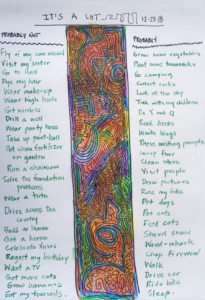 IT'S A LOT
12-23-18
PROBABLY NOT
Fly of my own accord
Visit my sister
Go to
Dye my hair
Wear make-up
Wear high heels
Get
Drill a well
Wear panty hose
Take up paint-ball
Put chem fertilizer
on garden
Run a chainsaw
Solve the foundation
problems
Wear a tutu
Drive across the
country
Build a house
Get a horse
Celebrate
Regret my birthday
Want a TV
Get more cats
Grow bananas
Eat my toenails.
PROBABLY
Grow some vegetables
Plant some
Go camping
Collect cubes
Look at the sky
Talk with my children
Do Y and Q
Read books
Write blogs
These writing prompts
Sweep floor
Clean stove
Visit people
Draw pictures
Ride my bike
Pet dogs
Pet cats
Feed cats
Shovel snow
Weed-whack
Chop firewood
Walk
Drive car
Ride bike
Sleep.